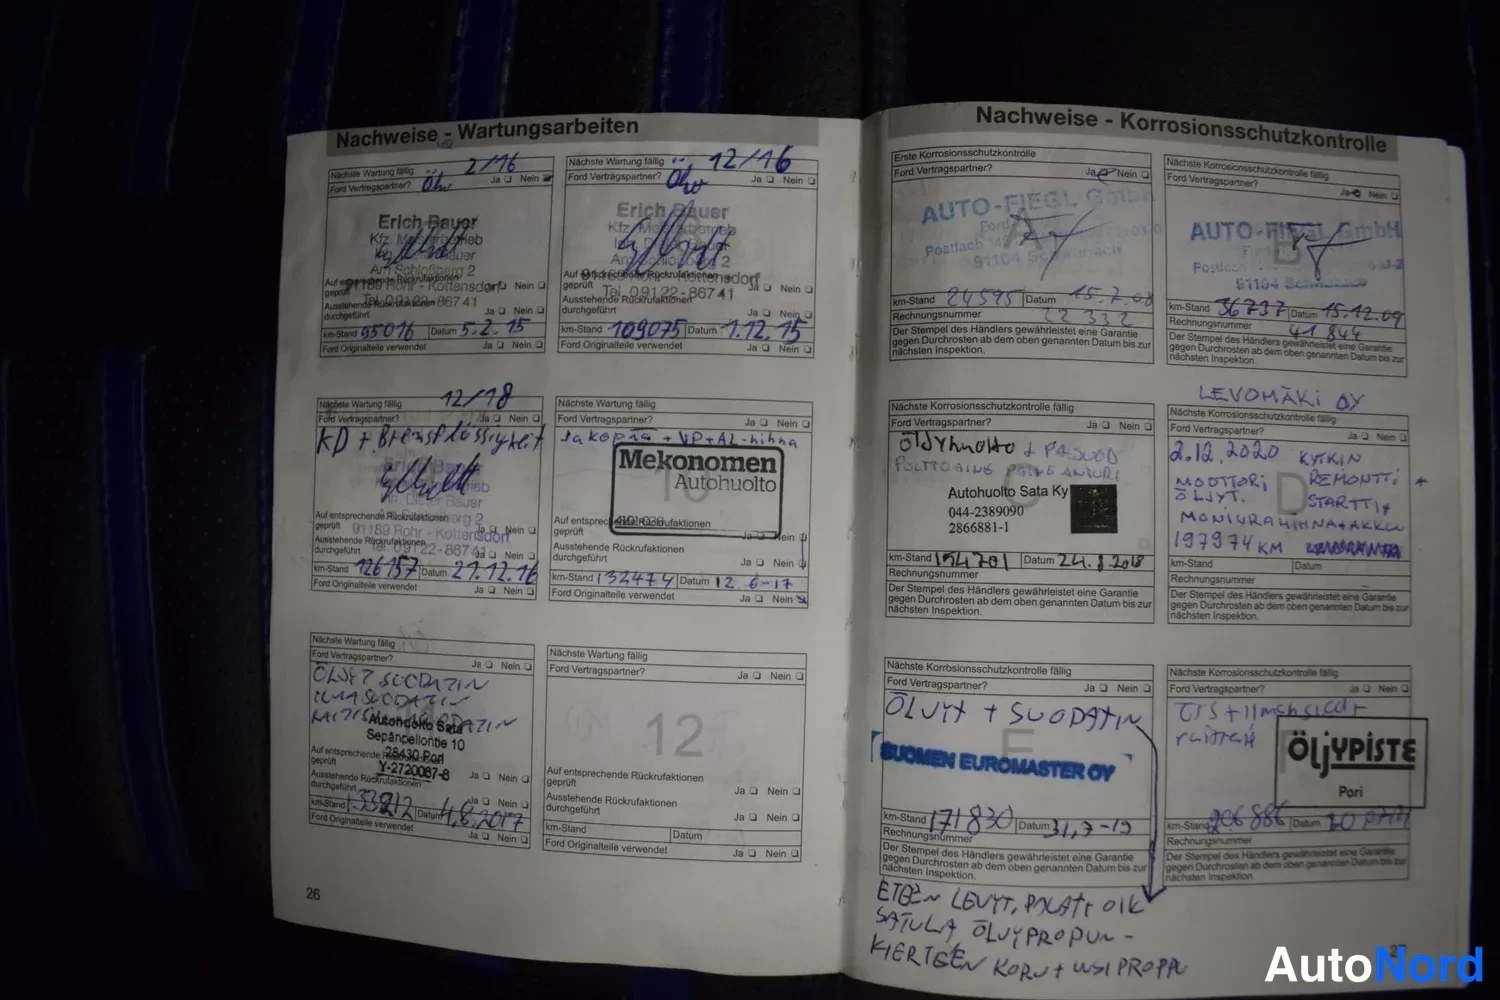 Nachweise - Wartungsarbeiten
Nächste Wartung fällig 2/16
Ford Vertragspartner? Ja Nein
Erich Bauer
Kfz. Meisterbetrieb
Am Schloßberg 2
91189 Rohr - Kottensdorf
Tel. 09122-86741
Auf entsprechende Rückrufaktionen
geprüft Ja Nein
Ausstehende Rückrufaktionen
durchgeführt Ja Nein
km-Stand 95016 Datum 5.2.15
Ford Originalteile verwendet Ja Nein
Nächste Wartung fällig 12/16
Ford Vertragspartner? Ja Nein
Erich Bauer
Kfz. Meisterbetrieb
Am Schloßberg 2
91189 Rohr - Kottensdorf
Tel. 09122-86741
Auf entsprechende Rückrufaktionen
geprüft Ja Nein
Ausstehende Rückrufaktionen
durchgeführt Ja Nein
km-Stand 109075 Datum 1.12.15
Ford Originalteile verwendet Ja Nein
12/18
Nächste Wartung fällig
Ford Vertragspartner? Ja Nein
KD + Bremsflüssigkeit
Erich Bauer
Inh. Dieter Bauer
Am Schloßberg 2
91189 Rohr - Kottensdorf
Tel. 09122-86741
Auf entsprechende Rückrufaktionen
geprüft Ja Nein
Ausstehende Rückrufaktionen
durchgeführt Ja Nein
km-Stand 126157 Datum 21.12.16
Ford Originalteile verwendet Ja Nein
Nächste Wartung fällig
Ford Vertragspartner? Ja Nein
Jakopää + VP + AL-hihna
10
Mekonomen
Autohuolto
Auf entsprechende Rückrufaktionen
geprüft Ja Nein
Ausstehende Rückrufaktionen
durchgeführt Ja Nein
km-Stand 132474 Datum 12.6-17
Ford Originalteile verwendet Ja Nein
Nächste Wartung fällig
Ford Vertragspartner? Ja Nein
ÖLJYT SUODATIN
ILMASUODATIN
Autohuolto Sata
Sepänpellontie 10
28430 Pori
Y-2720087-8
Auf entsprechende Rückrufaktionen
geprüft Ja Nein
Ausstehende Rückrufaktionen
durchgeführt Ja Nein
km-Stand 133812 Datum 4.8.2017
Ford Originalteile verwendet Ja Nein
Nächste Wartung fällig
Ford Vertragspartner? Ja Nein
12
Auf entsprechende Rückrufaktionen
geprüft Ja Nein
Ausstehende Rückrufaktionen
durchgeführt Ja Nein
km-Stand Datum
Ford Originalteile verwendet Ja Nein
26
Nachweise - Korrosionsschutzkontrolle
Erste Korrosionsschutzkontrolle
Ford Vertragspartner? Ja Nein
A
AUTO-FIEGL GmbH
Postfach
91104 Schwabach
km-Stand 24595 Datum 15.7.08
Rechnungsnummer 22332
Der Stempel des Händlers gewährleistet eine Garantie
gegen Durchrosten ab dem oben genannten Datum bis zur
nächsten Inspektion.
Nächste Korrosionsschutzkontrolle fällig
Ford Vertragspartner? Ja Nein
B
AUTO-FIEGL GmbH
Postfach
91104 Schwabach
km-Stand 36737 Datum 15.12.09
Rechnungsnummer 41844
Der Stempel des Händlers gewährleistet eine Garantie
gegen Durchrosten ab dem oben genannten Datum bis zur
nächsten Inspektion.
Nächste Korrosionsschutzkontrolle fällig
Ford Vertragspartner? Ja Nein
Öljynhuolto + P.A.SUOD
C
Autohuolto Sata Ky
044-2389090
2866881-1
km-Stand 154701 Datum 24.8.2018
Rechnungsnummer
Der Stempel des Händlers gewährleistet eine Garantie
gegen Durchrosten ab dem oben genannten Datum bis zur
nächsten Inspektion.
LEVOMÄKI OY
Nächste Korrosionsschutzkontrolle fällig
Ford Vertragspartner? Ja Nein
2.12.2020 KYTKIN
MOOTTORI REMONTTI +
ÖLJYT. STARTTI +
D
MONIURAHIHNA+AKKU
197974 KM
km-Stand Datum
Rechnungsnummer
Der Stempel des Händlers gewährleistet eine Garantie
gegen Durchrosten ab dem oben genannten Datum bis zur
nächsten Inspektion.
Nächste Korrosionsschutzkontrolle fällig
Ford Vertragspartner? Ja Nein
ÖLJYT + SUODATIN
E
SUOMEN EUROMASTER OY
km-Stand 171830 Datum 31,7-19
Rechnungsnummer
Der Stempel des Händlers gewährleistet eine Garantie
gegen Durchrosten ab dem oben genannten Datum bis zur
nächsten Inspektion.
ETEEN LEVYT, PALAT + OIK
SATULA ÖLJYPROPUN -
KIERTEEN KORJ + UUSI PROPPU
Nächste Korrosionsschutzkontrolle fällig
Ford Vertragspartner? Ja Nein
ÖLJYPISTE
Pori
km-Stand 206886 Datum
Rechnungsnummer
Der Stempel des Händlers gewährleistet eine Garantie
gegen Durchrosten ab dem oben genannten Datum bis zur
nächsten Inspektion.
AutoNord